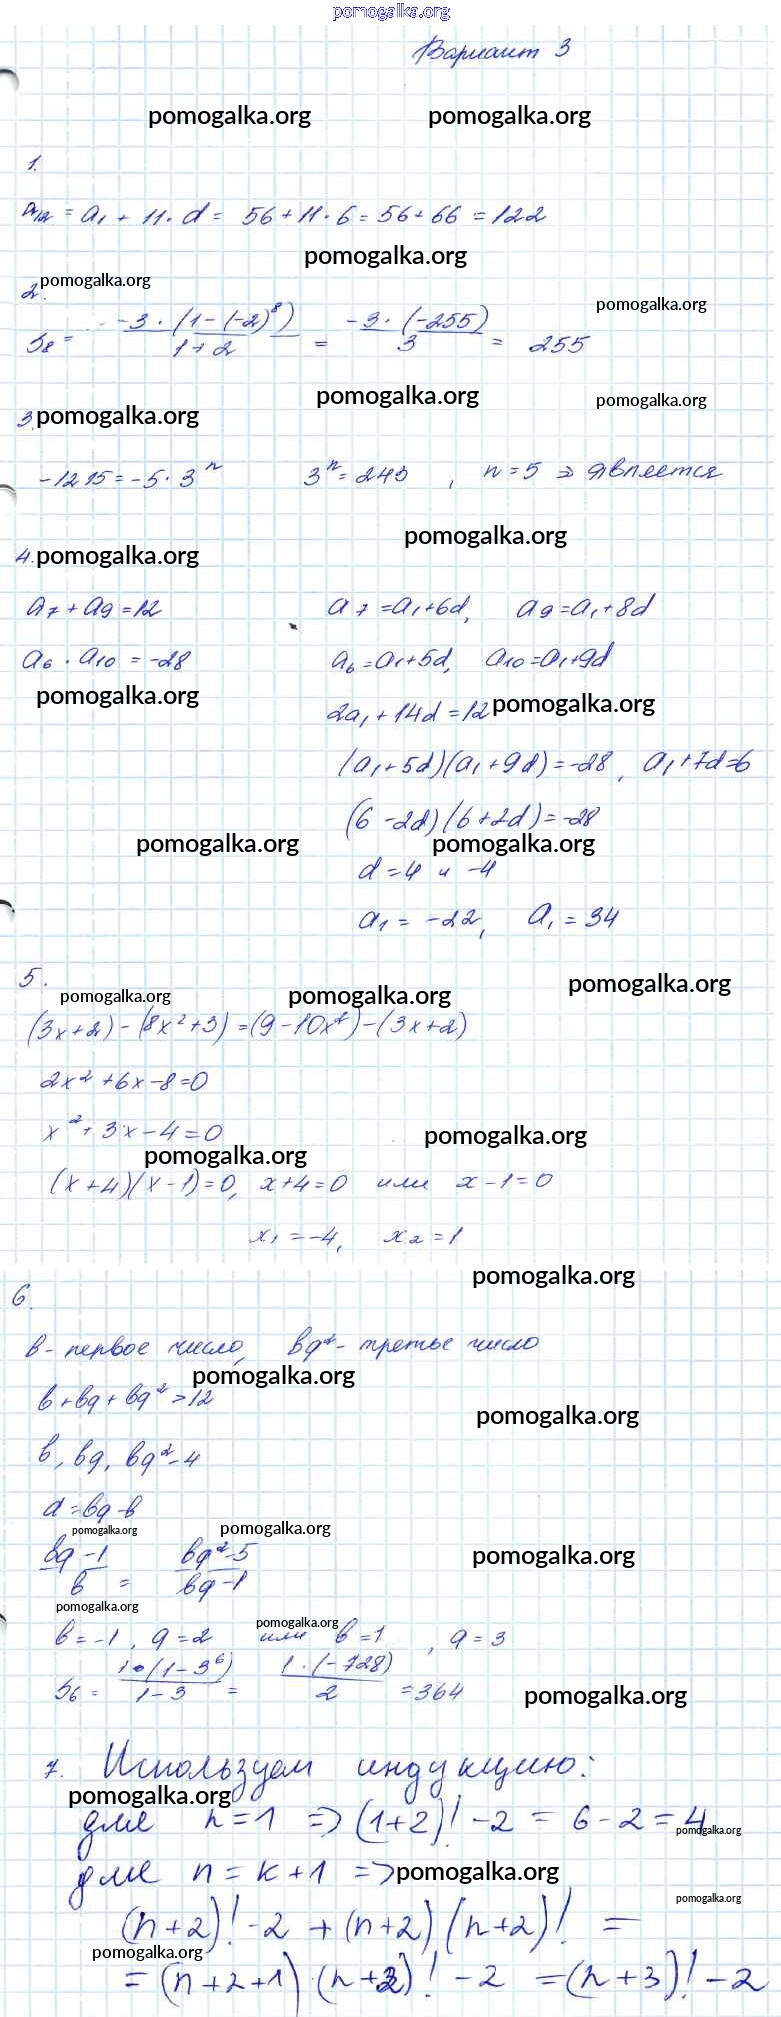 pomogalka.org
Вариант 3
pomogalka.org pomogalka.org
1.
a₁₂ = a₁ + 11 · d = 56 + 11 · 6 = 56 + 66 = 122
pomogalka.org
2. pomogalka.org pomogalka.org
S₈ = -3 · (1 - (-2)⁸) / 1 + 2 = -3 · (-255) / 3 = 255
pomogalka.org pomogalka.org
3. pomogalka.org
-1215 = -5 · 3ⁿ 3ⁿ = 243 , n = 5 ⇒ является
pomogalka.org
4. pomogalka.org
a₇ + a₉ = 12 a₇ = a₁ + 6d, a₉ = a₁ + 8d
a₆ · a₁₀ = -28 a₆ = a₁ + 5d, a₁₀ = a₁ + 9d
pomogalka.org 2a₁ + 14d = 12 pomogalka.org
(a₁ + 5d)(a₁ + 9d) = -28, a₁ + 7d = 6
(6 - 2d)(6 + 2d) = -28
pomogalka.org pomogalka.org
d = 4 и -4
a₁ = -22, a₁ = 34
5. pomogalka.org pomogalka.org pomogalka.org
(3x + 2) - (8x² + 3) = (9 - 10x²) - (3x + 2)
2x² + 6x - 8 = 0
x² + 3x - 4 = 0 pomogalka.org
pomogalka.org
(x + 4)(x - 1) = 0, x + 4 = 0 или x - 1 = 0
x₁ = -4, x₂ = 1
pomogalka.org
6.
в - первое число, вq² - третье число
pomogalka.org
в + вq + вq² = 12 pomogalka.org
в, вq, вq² - 4
d = вq - в
pomogalka.org pomogalka.org
вq - 1 / в = вq² - 5 / вq - 1 pomogalka.org
pomogalka.org pomogalka.org
в = -1, q = 2 или в = 1 , q = 3
S₆ = 1 · (1 - 3⁶) / 1 - 3 = 1 · (-728) / 2 = 364 pomogalka.org
7. Используем индукцию:
pomogalka.org
для n = 1 ⇒ (1 + 2)! - 2 = 6 - 2 = 4 pomogalka.org
для n = k + 1 ⇒ pomogalka.org
pomogalka.org
(n + 2)! - 2 + (n + 2)(n + 2)! =
pomogalka.org
= (n + 2 + 1) · (n + 2)! - 2 = (n + 3)! - 2